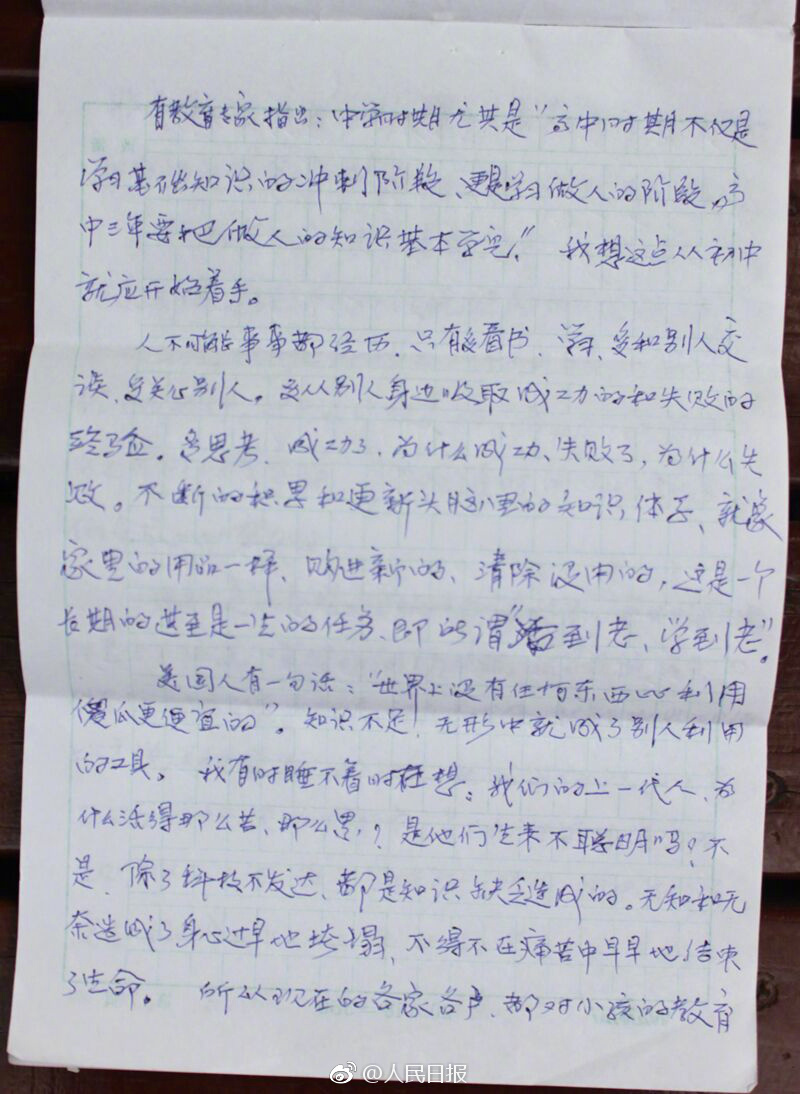 有教育专家指出：中学时期尤其是“高中时期不仅是
学习基础知识的冲刺阶段、更是学习做人的阶段，高
中三年要把做人的知识基本学完”。我想这点从初中
就应开始着手。
人不可能事事都经历，只有多看书、学习、多和别人交
谈、多关心别人。多从别人身边吸取成功的和失败的
经验。多思考、成功了，为什么成功、失败了，为什么失
败。不断的积累和更新头脑里的知识体系、就象
家里的用品一样、购进新的、清除没用的，这是一个
长期的甚至是一生的任务、即所谓“活到老、学到老”。
美国人有一句话：“世界上没有任何东西比利用
傻瓜更便宜的”。知识不足！无形中就成了别人利用
的工具。我有时睡不着时在想：我们的上一代人、为
什么活得那么苦、那么累，？是他们生来不聪明吗？不
是、除了科技不发达、都是知识缺乏造成的。无知和无
奈造成了身心过早地垮塌、不得不在痛苦中早早地结束
了生命。所以现在的各家各户、都对小孩的教育
@人民日报